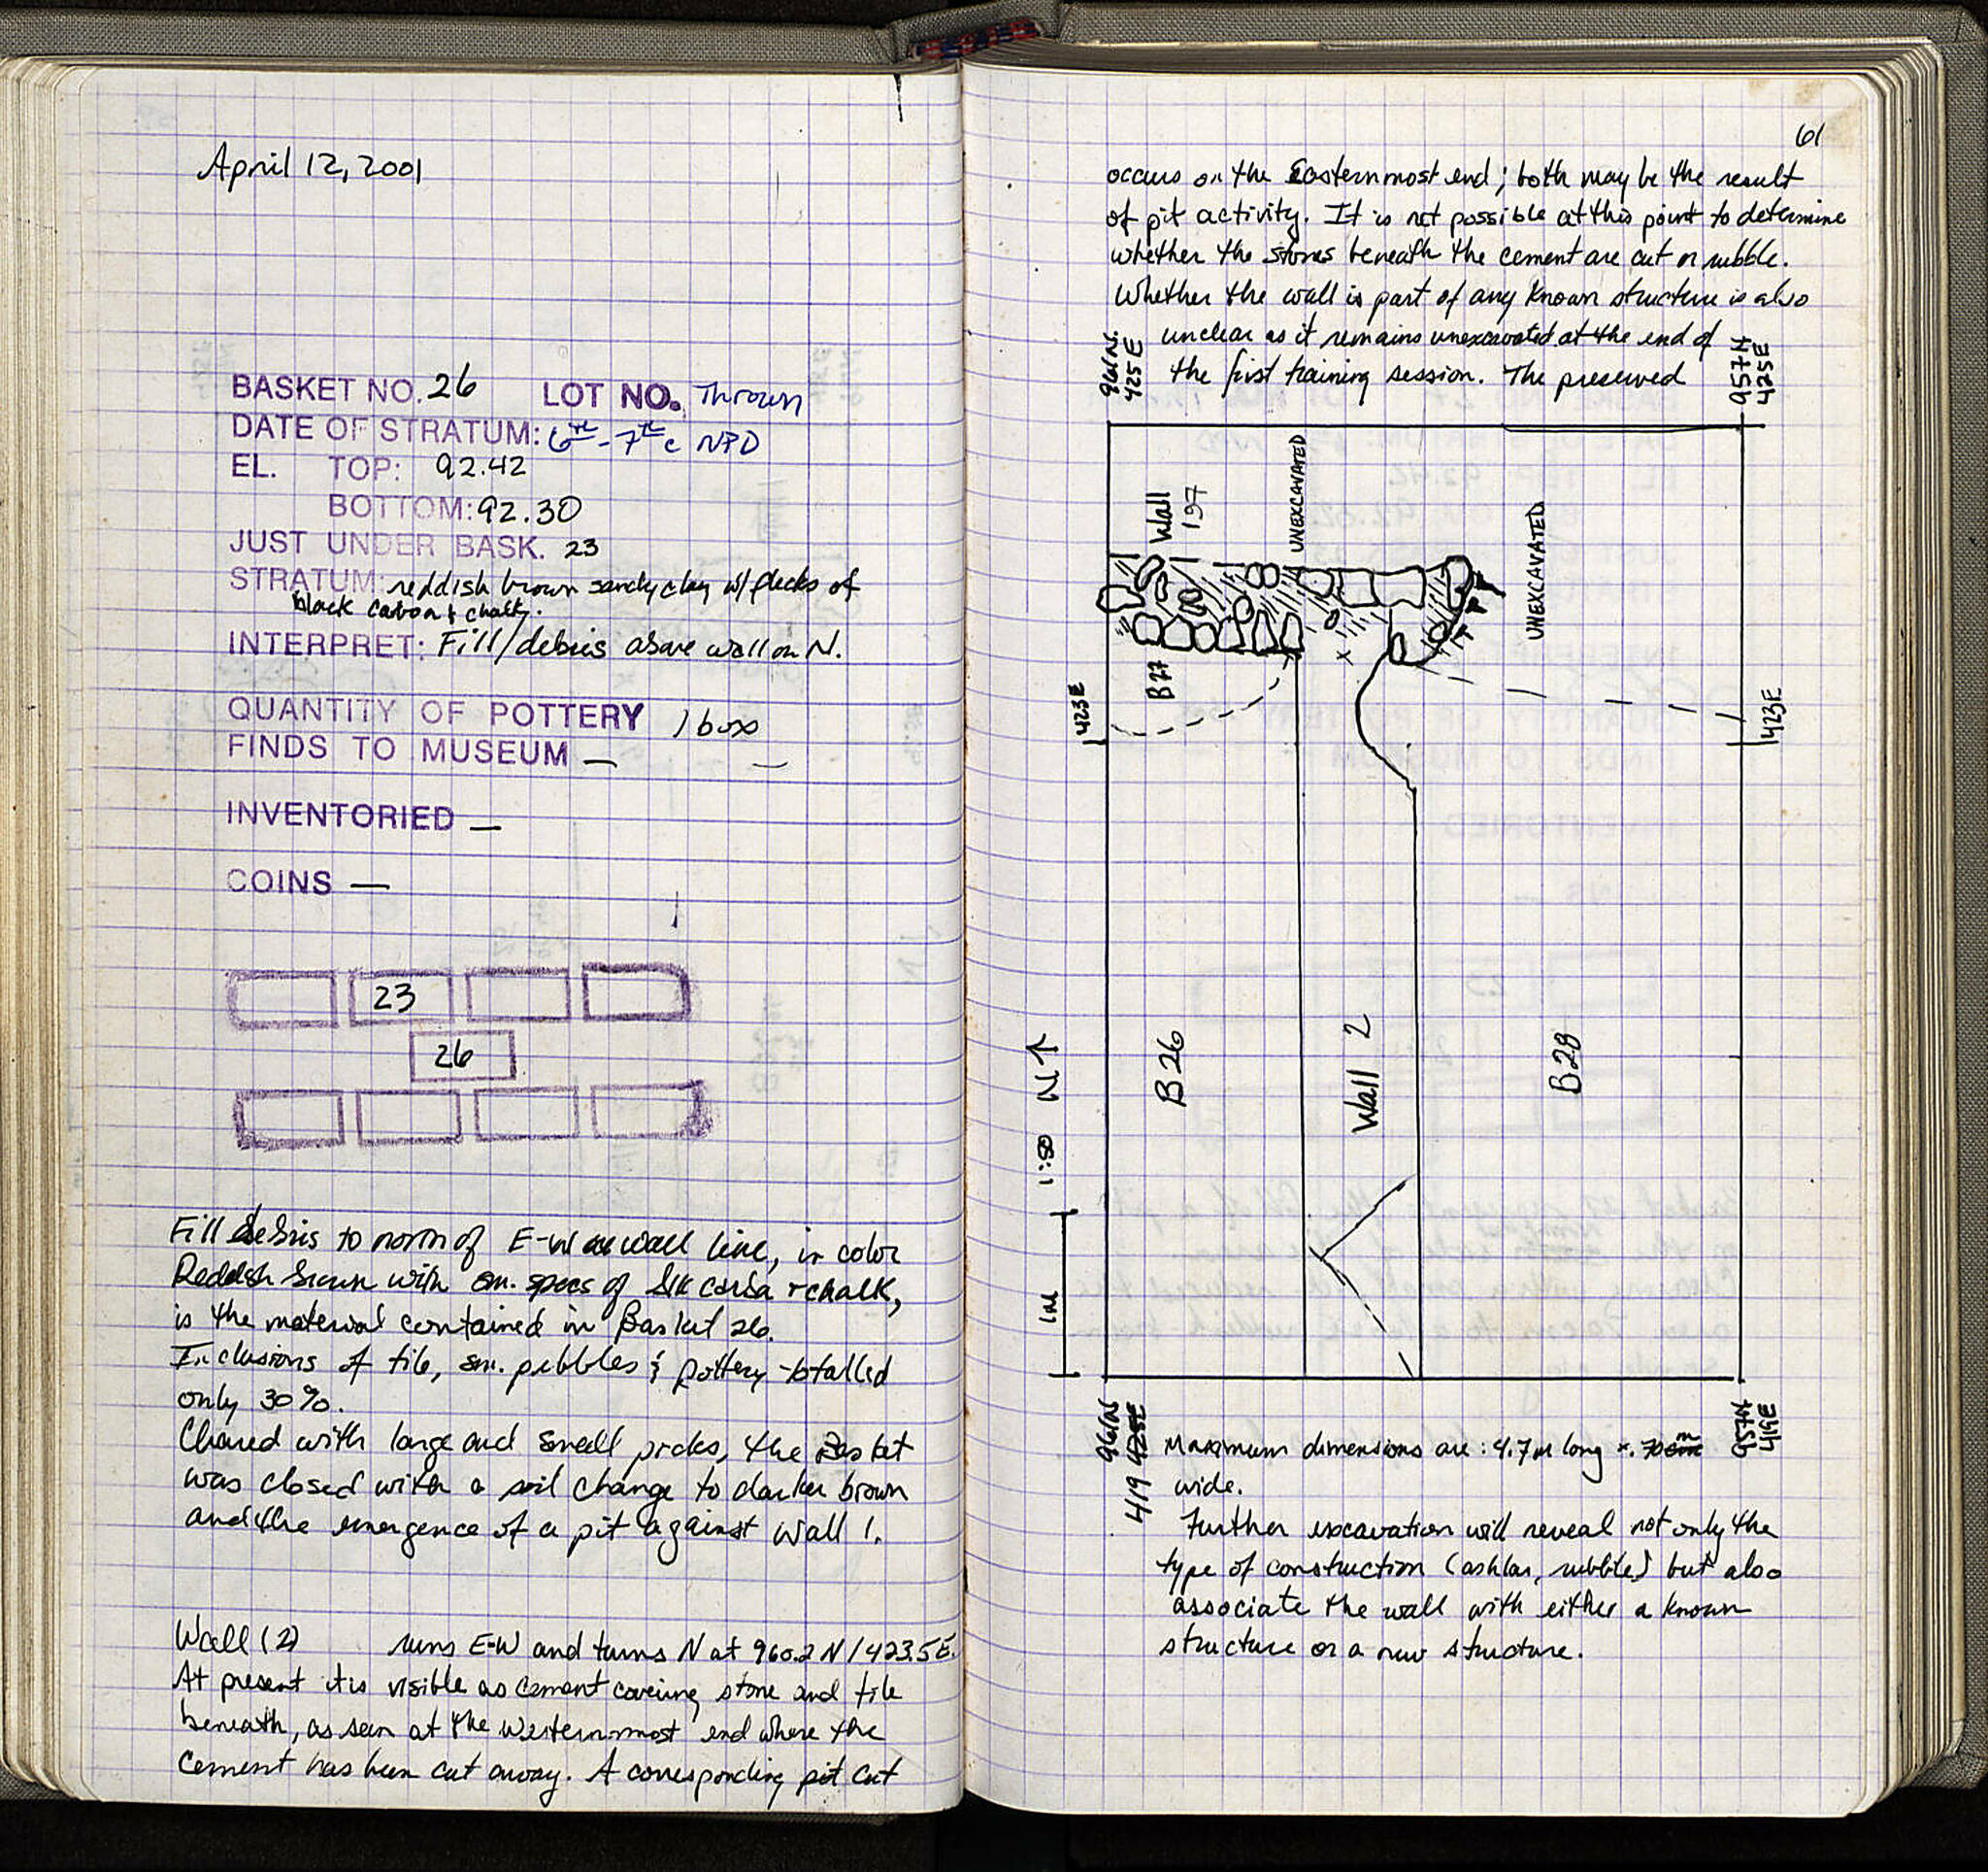 April 12, 2001
BASKET NO. 26 LOT NO. Thrown
DATE OF STRATUM: 6th - 7th c NPD
EL. TOP: 92.42
BOTTOM: 92.30
JUST UNDER BASK. 23
STRATUM: reddish brown sandy clay w/ flecks of
black carbon & chalk.
INTERPRET: Fill/debris above wall on N.
QUANTITY OF POTTERY 1 box
FINDS TO MUSEUM —
INVENTORIED —
COINS —
23
26
Fill debris to north of E-W wall line, in color
Reddish brown with sm. specs of blk + chalk,
is the material contained in Basket 26.
Inclusions of tile, sm. pebbles & pottery totalled
only 30%.
Cleared with large and small picks, the Basket
was closed with a soil change to darker brown
and the emergence of a pit against Wall 1.
Wall (2) runs E-W and turns N at 960.2 N / 423.5 E.
At present it is visible as cement covering stone and tile
beneath, as seen at the Westernmost end where the
cement has been cut away. A corresponding pit cut
61
occurs on the Easternmost end; both may be the result
of pit activity. It is not possible at this point to determine
whether the stones beneath the cement are cut or rubble.
Whether the wall is part of any known structure is also
unclear as it remains unexcavated at the end of
the first training session. The preserved
961N.
425 E
957N
425E
Wall
197
UNEXCAVATED
UNEXCAVATED
B27
423E
423E
B26
Wall 2
B28
N↑
1:50
1M
961N
419 425E
957N
419E
Maximum dimensions are: 4.7m long x .70 m
wide.
Further excavation will reveal not only the
type of construction (ashlar, rubble) but also
associate the wall with either a known
structure or a new structure.